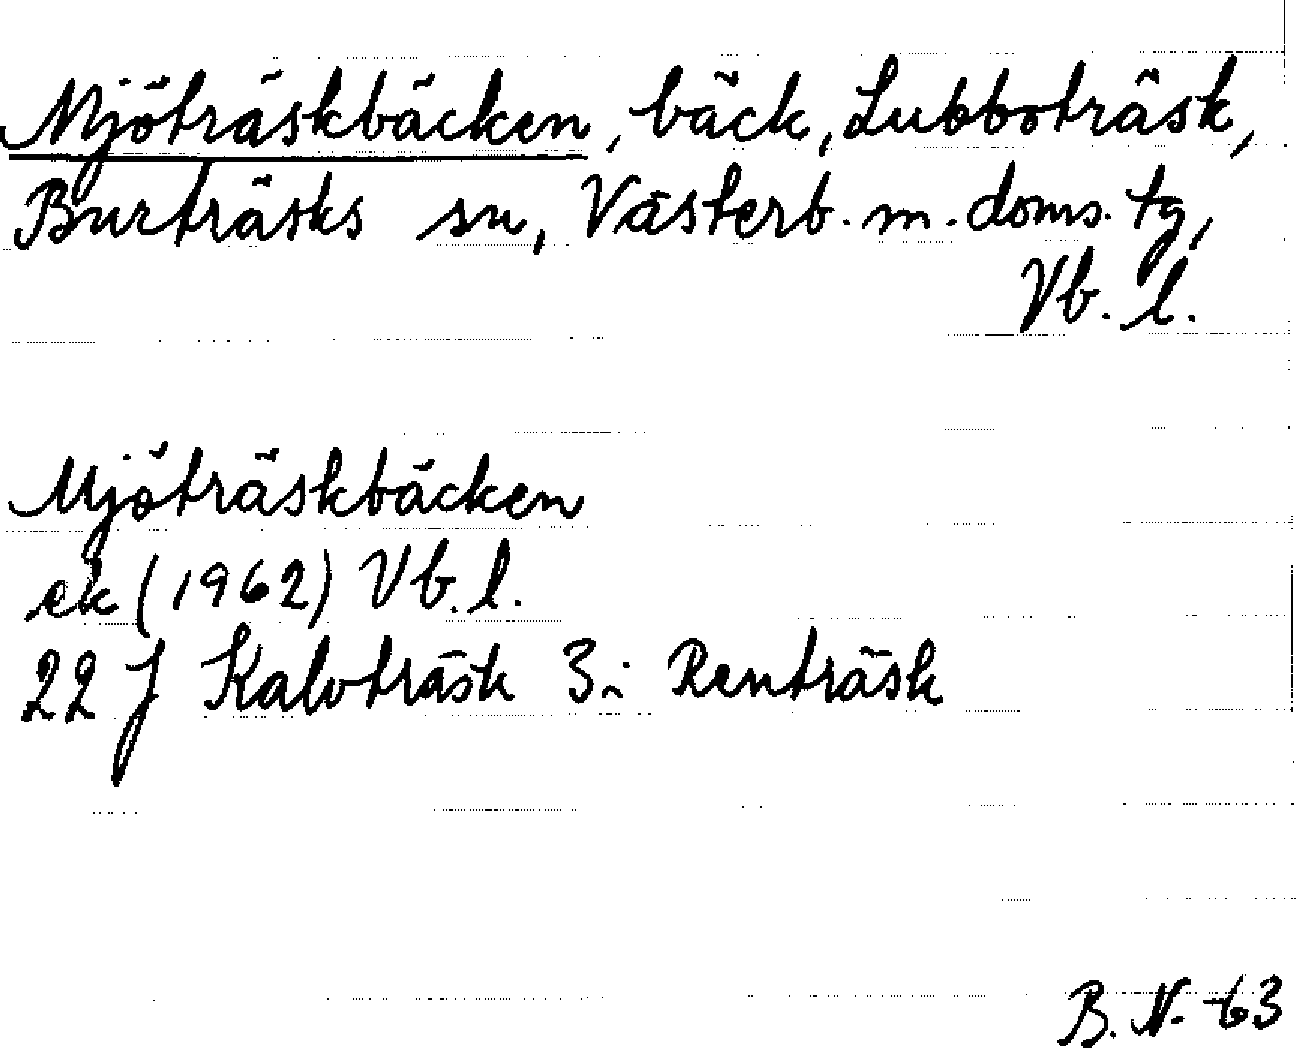 Mjöträskbäcken, bäck, Lubboträsk,
Burträsks sn, Västerb. m. doms. tg,
Vb. l.
Mjöträskbäcken
ek (1962) Vb. l.
22 J Kalvträsk 3: Renträsk
B. N. 63